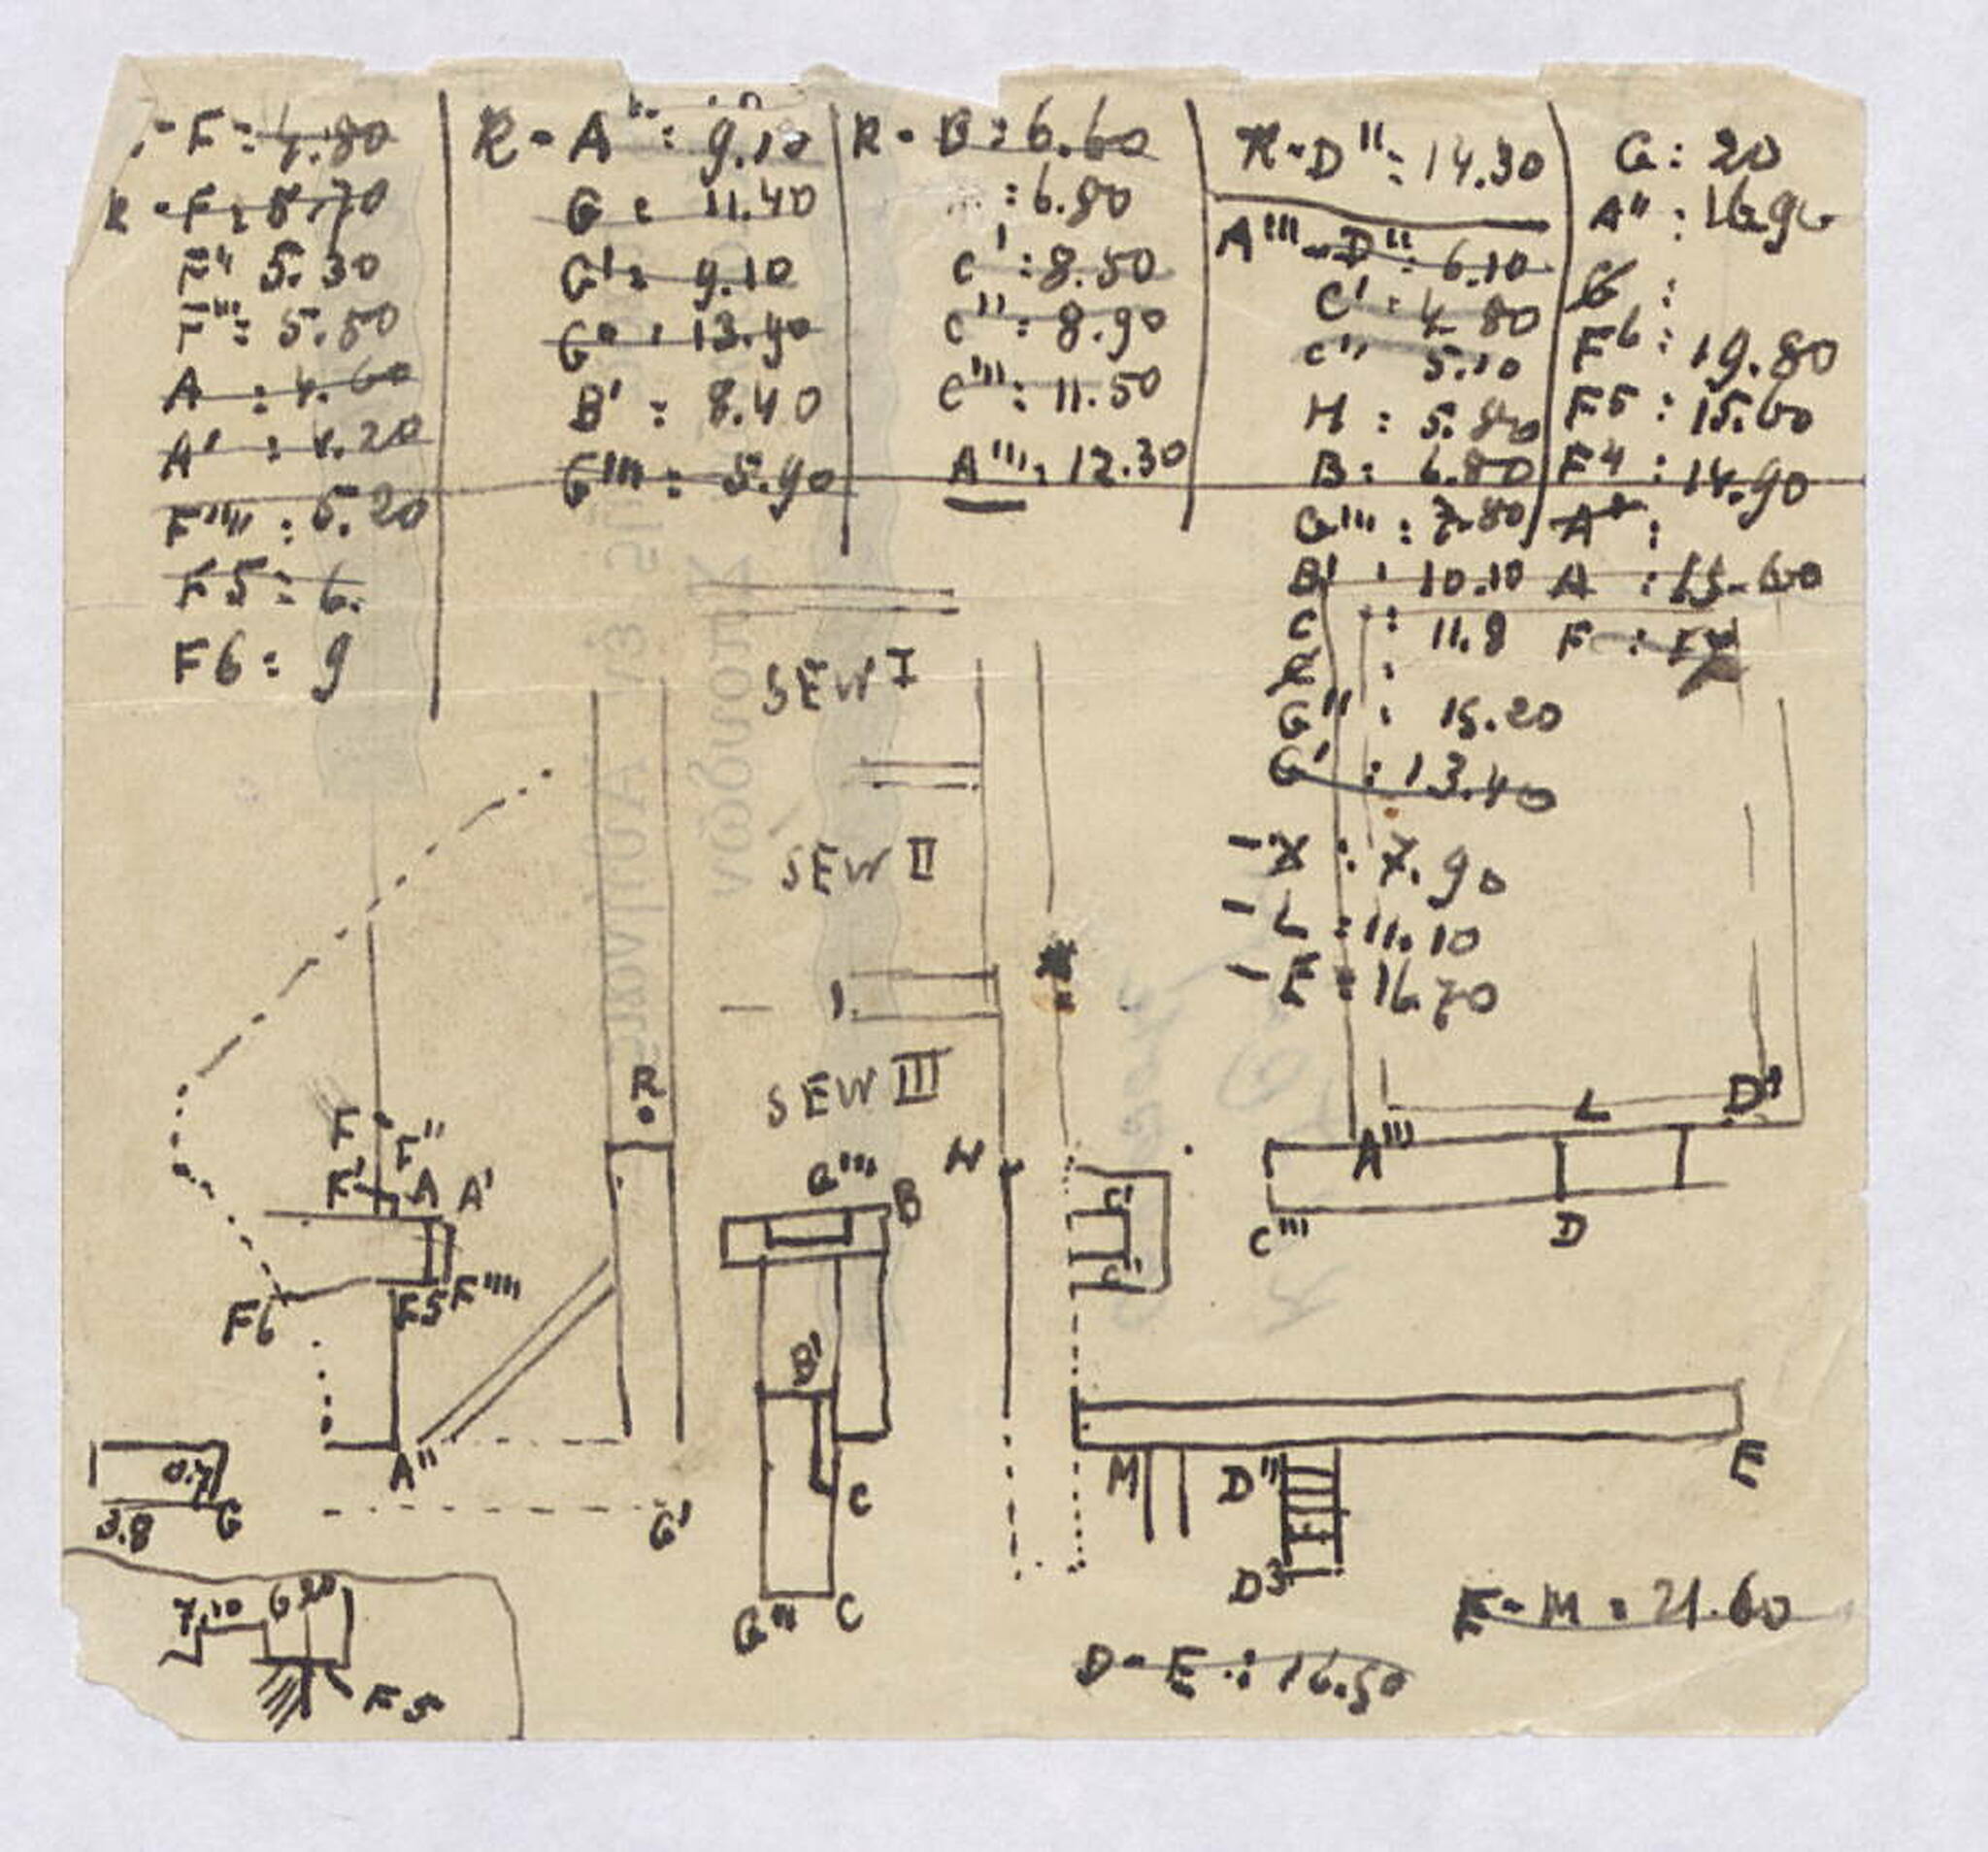 - F : 4.80
R - F : 8.70
F" 5.30
F''' : 5.50
A : 4.60
A' : 4.20
F'''' : 5.20
F5 : 6.
F6 : 9
R - A" : 9.10
G : 11.40
G' : 9.10
G" : 13.90
B' : 8.40
G''' : 5.90
R - B : 6.60
: 6.80
C' : 8.50
C" : 8.90
C''' : 11.50
A''' : 12.30
R - D" : 14.30
A''' - D" : 6.10
C' : 4.80
C" 5.10
H : 5.80
B : 6.80
G''' : 7.80
B' : 10.10
C : 11.8
G" : 15.20
G' : 13.40
- X : 7.90
- L : 11.10
- E : 16.70
G : 20
A" : 16.90
G :
F6 : 19.80
F5 : 15.60
F4 : 14.90
A :
A : 15.60
F :
SEW I
SEW II
SEW III
R
F
F"
F'
A
A'
F6
F5
F''''
A"
G'
4.0
3.8
G
7.10
6.20
F5
G'''
B
B'
C
G"
C
H
C'
C"
A'''
L
D"
C'''
D
M
D"
D3
E
E - M : 21.60
D - E : 16.50